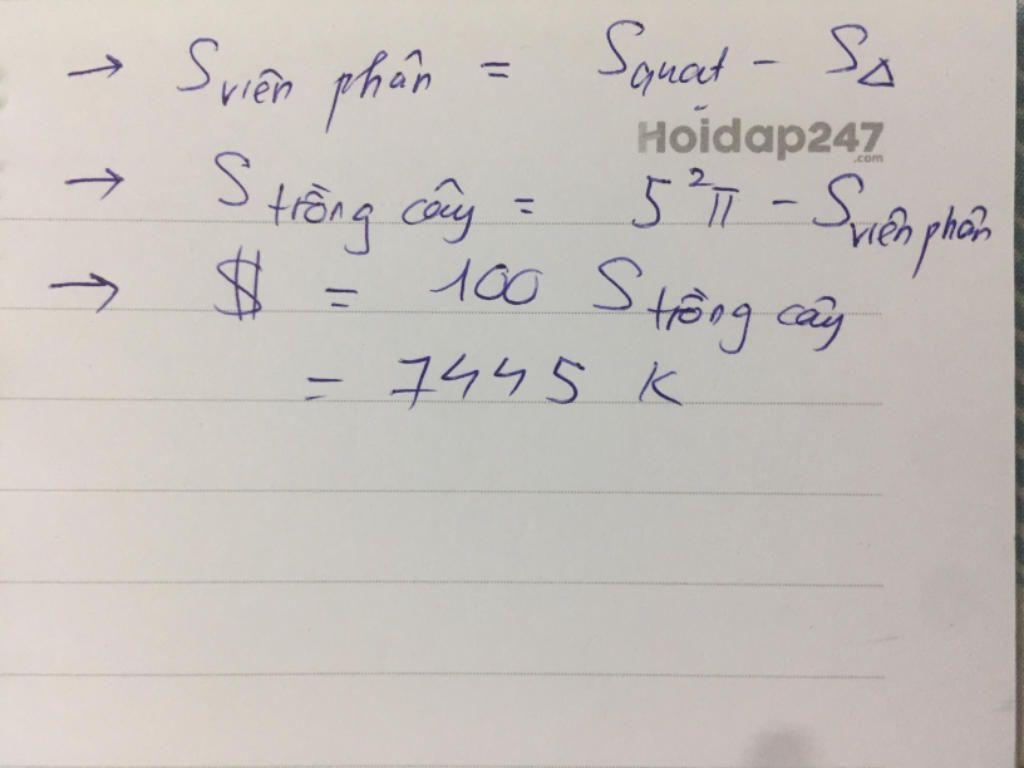 → S viên phân = S quat - S Δ
Hoidap247
.com
→ S trồng cây = 5²π - S viên phân
→ $ = 100 S trồng cây
= 7445 K